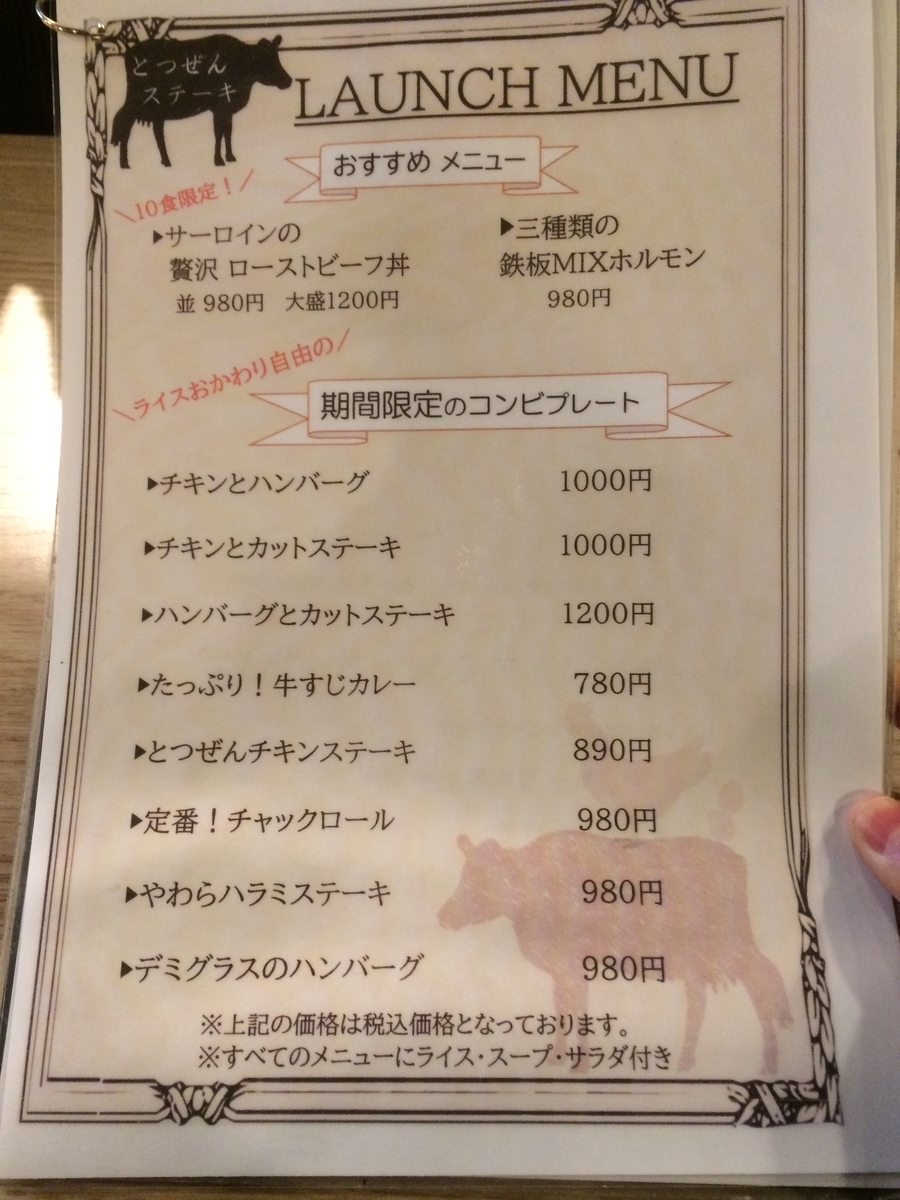 とつぜん
ステーキ
LAUNCH MENU
おすすめ メニュー
\10食限定！/
▶サーロインの
贅沢 ローストビーフ丼
並 980円 大盛1200円
▶三種類の
鉄板MIXホルモン
980円
\ライスおかわり自由の/
期間限定のコンビプレート
▶チキンとハンバーグ 1000円
▶チキンとカットステーキ 1000円
▶ハンバーグとカットステーキ 1200円
▶たっぷり！牛すじカレー 780円
▶とつぜんチキンステーキ 890円
▶定番！チャックロール 980円
▶やわらハラミステーキ 980円
▶デミグラスのハンバーグ 980円
※上記の価格は税込価格となっております。
※すべてのメニューにライス・スープ・サラダ付き